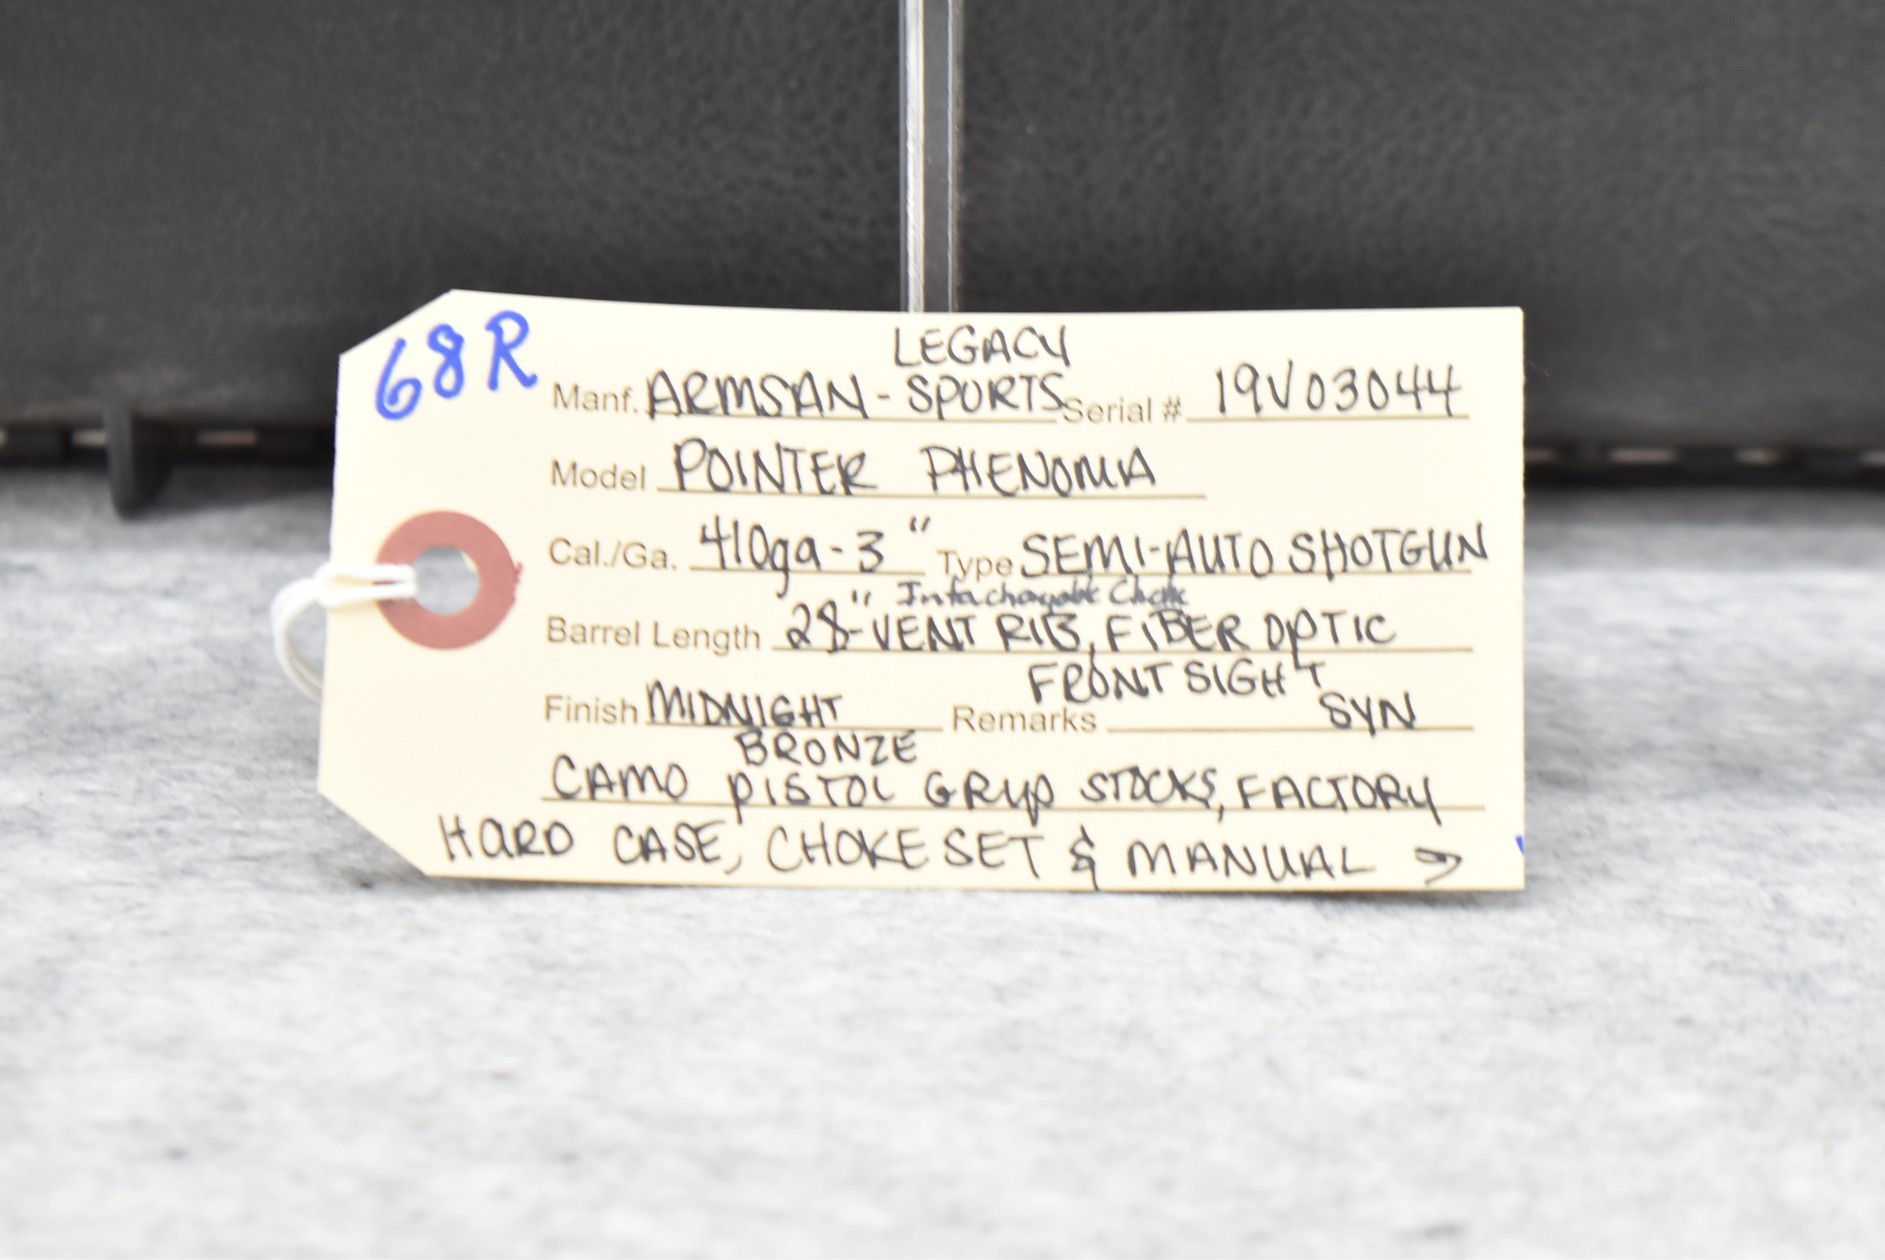 68R
LEGACY
Manf. ARMSAN - SPORTS Serial # 19V03044
Model POINTER PHENOMA
Cal./Ga. 410ga-3" Type SEMI-AUTO SHOTGUN
Intachangable Choke
Barrel Length 28"-VENT RIB, FIBER OPTIC
FRONT SIGHT
Finish MIDNIGHT Remarks SYN
BRONZE
CAMO PISTOL GRYP STOCKS, FACTORY
HARD CASE, CHOKE SET & MANUAL →